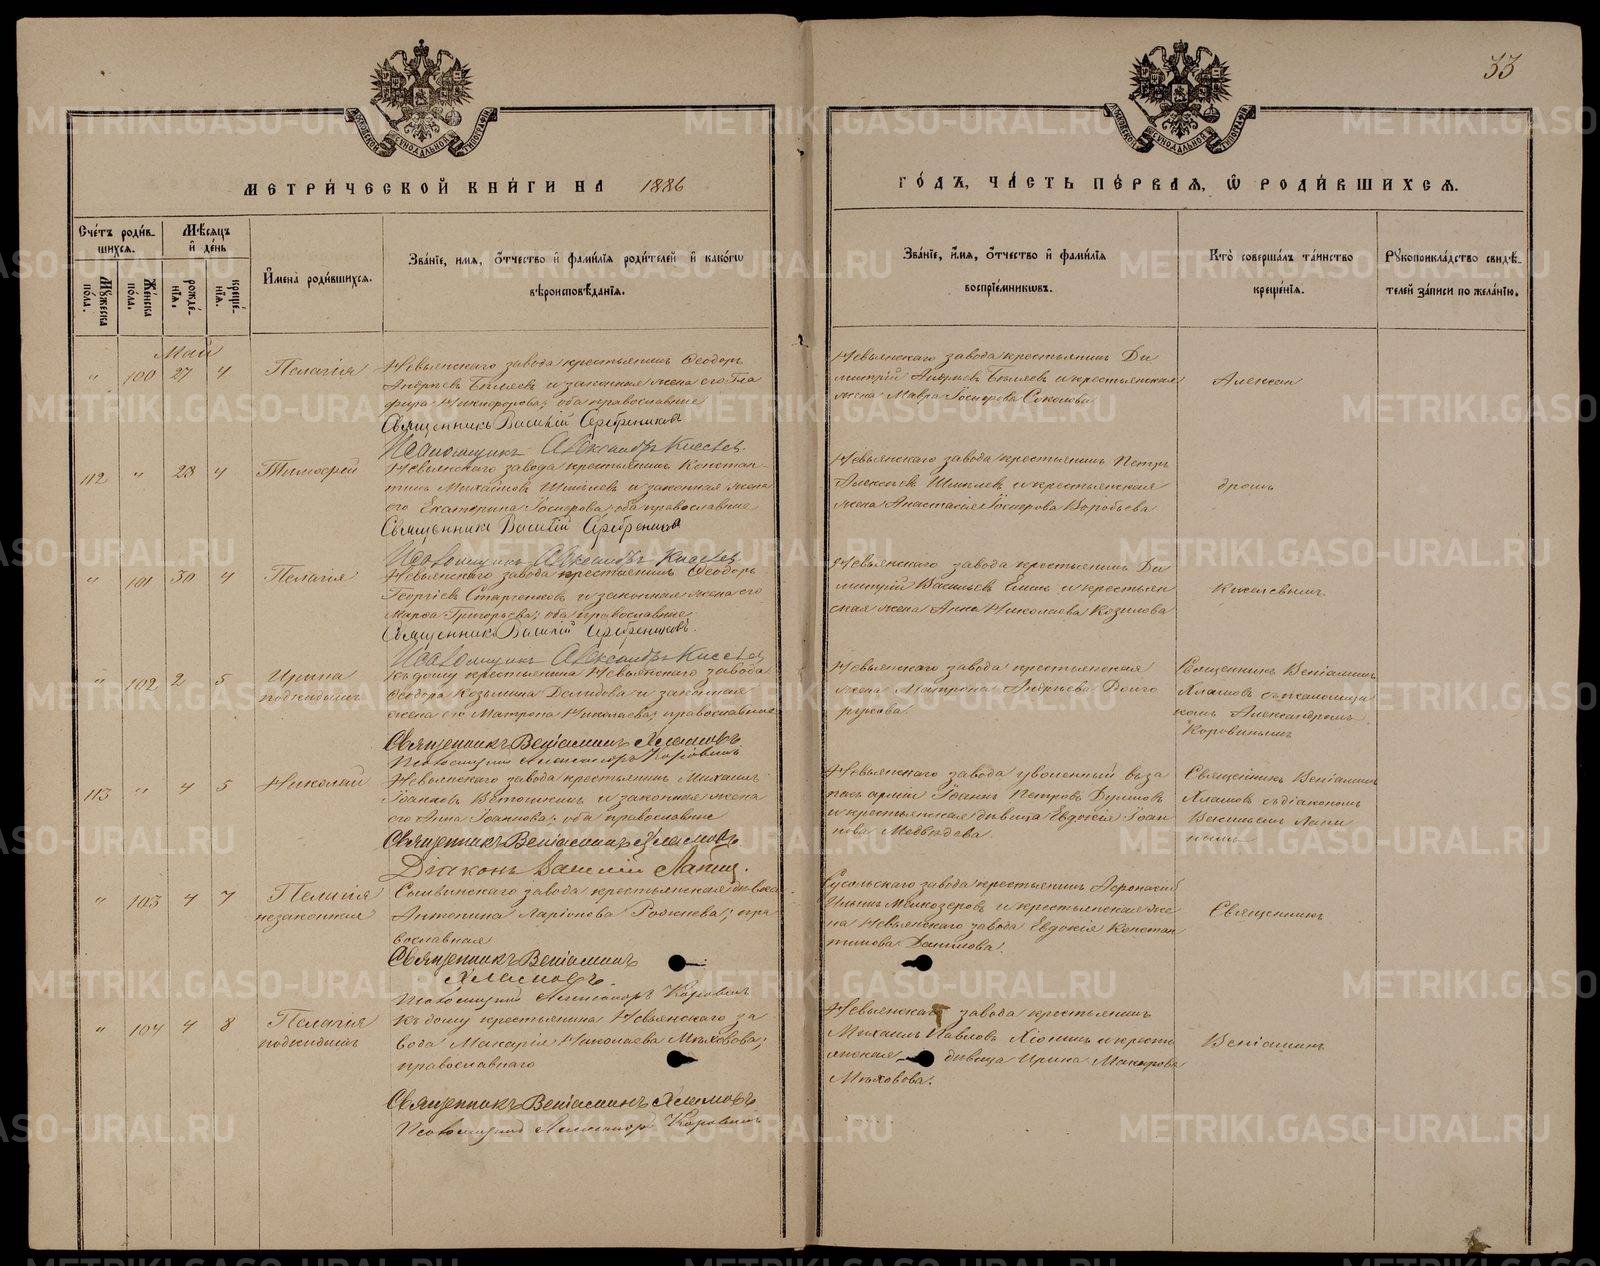 33
МЕТРИ́ЧЕСКОЙ КНИ́ГИ НА 1886
ГО́ДЪ, ЧА́СТЬ ПЕ́РВАЯ, Ѿ РОДИ́ВШИХСЯ.
Сче́тъ роди́в-
шихся.
Му́жеска по́ла.
Же́нска по́ла.
Мѣ́сяцъ и де́нь
рожде́-
нія.
креще́-
нія.
Имена̀ роди́вшихся.
Зва́ніе, имя, о́тчество и фами́лія роди́телей и како́гѡ
вѣроисповѣ́данія.
Зва́ніе, и́мя, о́тчество и фами́лія
воспріе́мниковъ.
Кто̀ соверша́лъ та́инство
креще́нія.
Рукоприкла́дство свидѣ́-
телей за́писи по жела́нію.
Май
" 100 27 4 Пелагія
Невьянскаго завода крестьянинъ Ѳеодоръ
Андреевъ Бѣляевъ и законная жена его Гла
фира Никифорова; оба православные
Священникъ Василій Серебренниковъ
Псаломщикъ Александръ Киселевъ.
Невьянскаго завода крестьянинъ Ди
митрій Андреевъ Бѣляевъ и крестьянская
жена Мавра Соколова
Алексан
112 " 28 4 Тимоѳей
Невьянскаго завода крестьянинъ Констан-
тинъ Михайловъ и законная жена
его Екатерина оба православные
Священникъ Василій Серебренниковъ
Псаломщикъ Александръ Киселевъ
Невьянскаго завода крестьянинъ Петръ
Алексѣевъ и крестьянская
жена Анастасія Воробьева
дромъ
" 101 30 4 Пелагія
Невьянскаго завода крестьянинъ Ѳеодоръ
Георгіевъ и законная жена его
Марѳа Григорьева; оба православные
Священникъ Василій Серебренниковъ.
Псаломщикъ Александръ Киселевъ
Невьянскаго завода крестьянинъ Ди
митрій Васильевъ и крестьян
ская жена Анна Николаева Козлова
Киселевымъ
" 102 2 5 Ирина
подкидышъ
Къ дому крестьянина Невьянскаго завода
Ѳеодора Козьмина и законная
жена его Матрона Николаева; православные
Священникъ Веніаминъ Хламовъ
Псаломщикъ Александръ Коровинъ
Невьянскаго завода крестьянская
жена Матрона Андреева Долго
рукова.
Священникъ Веніаминъ
Хламовъ съ псаломщи
комъ Александромъ
Коровинымъ
113 " 4 5 Николай
Невьянскаго завода крестьянинъ Михаилъ
Іоанновъ Ветошкинъ и законная жена
его Анна Іоаннова; оба православные
Священникъ Веніаминъ Хламовъ
Діаконъ Василій
Невьянскаго завода уволенный въ за
пасъ арміи Іоаннъ Петровъ
и крестьянская дѣвица Евдокія Іоан
нова Медвѣдева.
Священникъ Веніаминъ
Хламовъ съ діакономъ
Василіемъ
" 103 4 7 Пелагія
незаконная
завода крестьянская дѣвка
Антонина Ларіонова пра
вославная
Священникъ Веніаминъ
Хламовъ.
Псаломщикъ Александръ Коровинъ
завода крестьянинъ
и крестьянская же
на Невьянскаго завода Евдокія Констан
тинова Данилова.
Священникъ
" 104 4 8 Пелагія
подкидышъ
Къ дому крестьянина Невьянскаго за
вода Макарія Николаева Мѣховова;
православнаго
Священникъ Веніаминъ Хламовъ
Псаломщикъ Александръ Коровинъ
Невьянскаго завода крестьянинъ
Михаилъ Павловъ и кресть
янская дѣвица Ирина Макарова
Мѣховова.
Веніаминъ